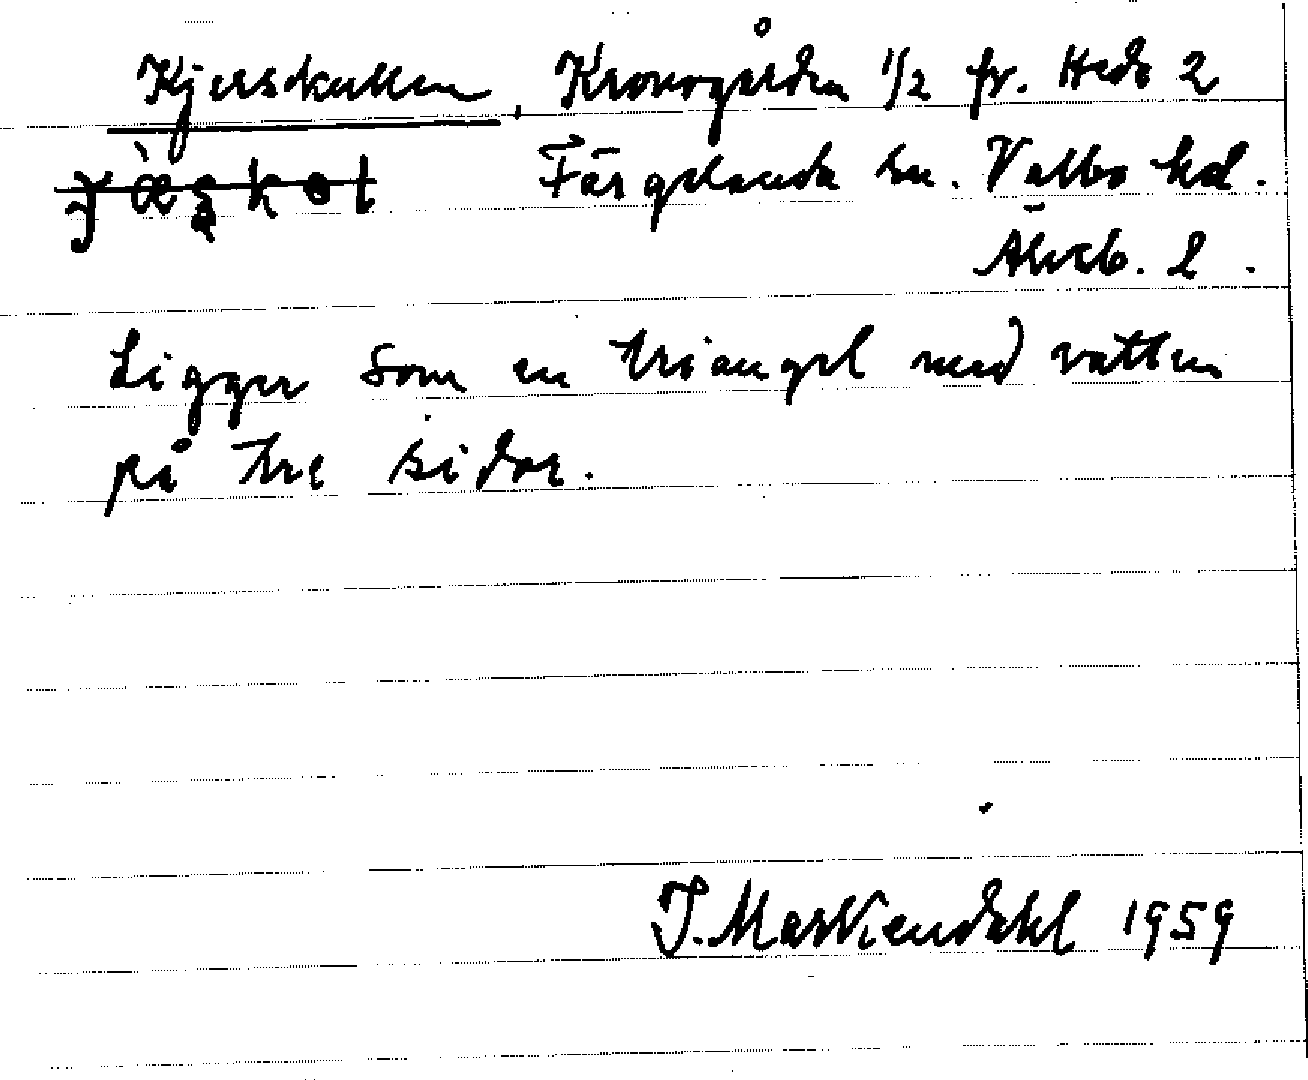 Kjerskullen, Kronogården 1/2 fr. Heds 2
Färgelanda sn. Valbo hd.
Älvsb. l.
Ligger som en triangel med vatten
på tre sidor.
J. Markendahl 1959